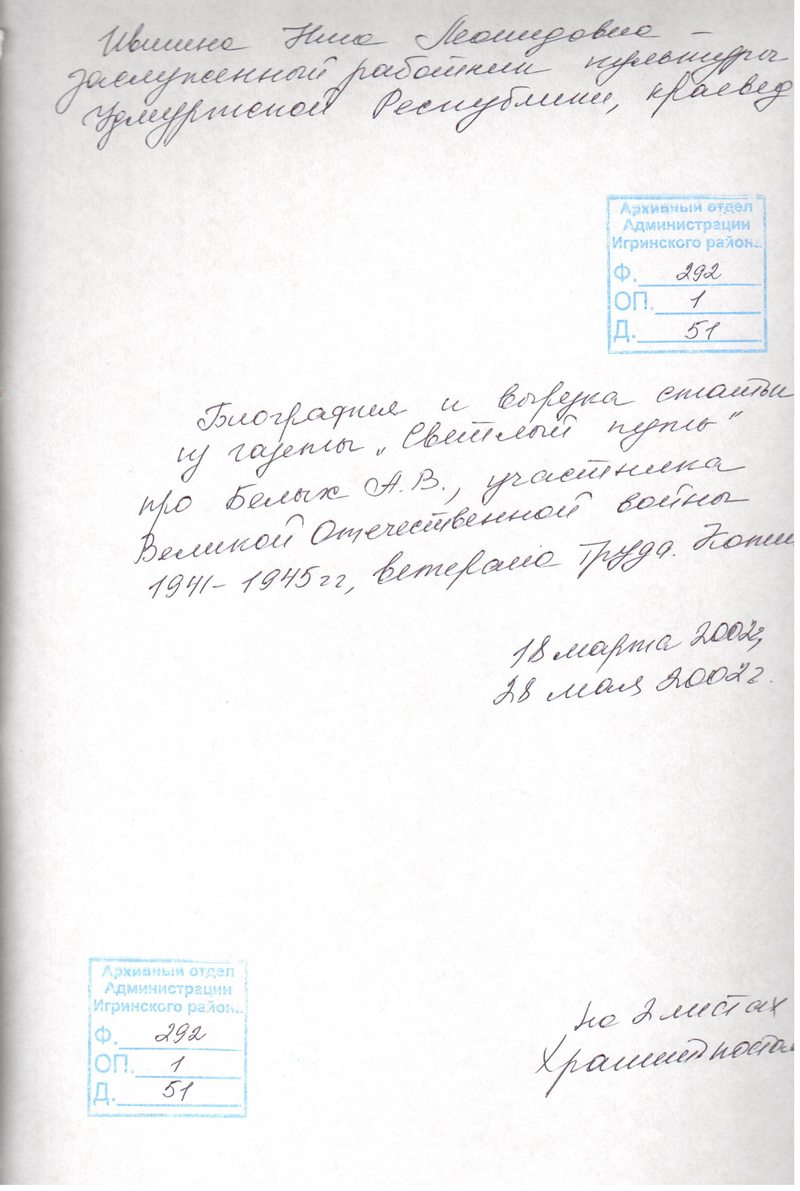 Ившина Нина Леонидовна –
заслуженный работник культуры
Удмуртской Республики, краевед
Архивный отдел
Администрации
Игринского район
Ф. 292
ОП. 1
Д. 51
Биография и вырезка статьи
из газеты „Светлый путь"
про Белых А.В., участника
Великой Отечественной войны
1941-1945гг, ветерана Труда. Копии
18 марта 2002г,
28 мая 2002г.
Архивный отдел
Администрации
Игринского район
Ф. 292
ОП. 1
Д. 51
на 2 листах
Хранить постоя